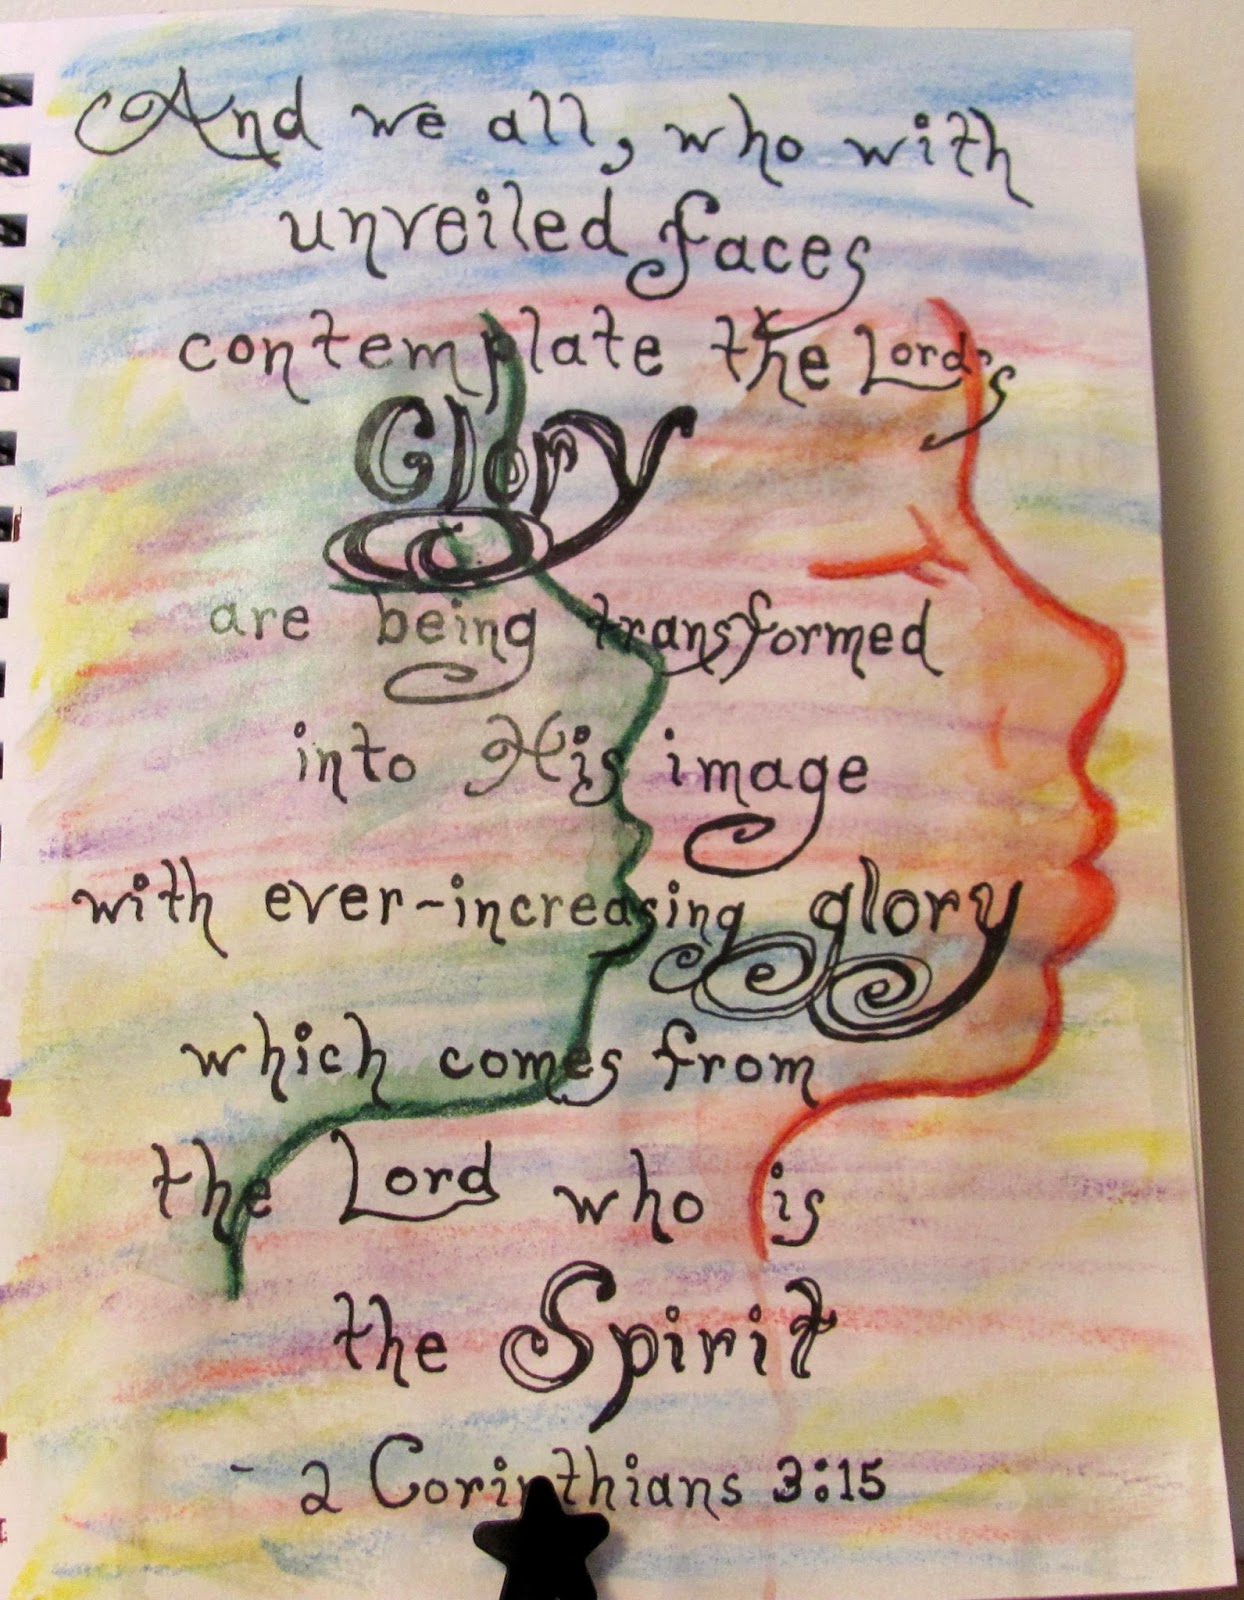 And we all, who with
unveiled faces
contemplate the Lord's
Glory
are being transformed
into His image
with ever-increasing glory
which comes from
the Lord who is
the Spirit
- 2 Corinthians 3:15